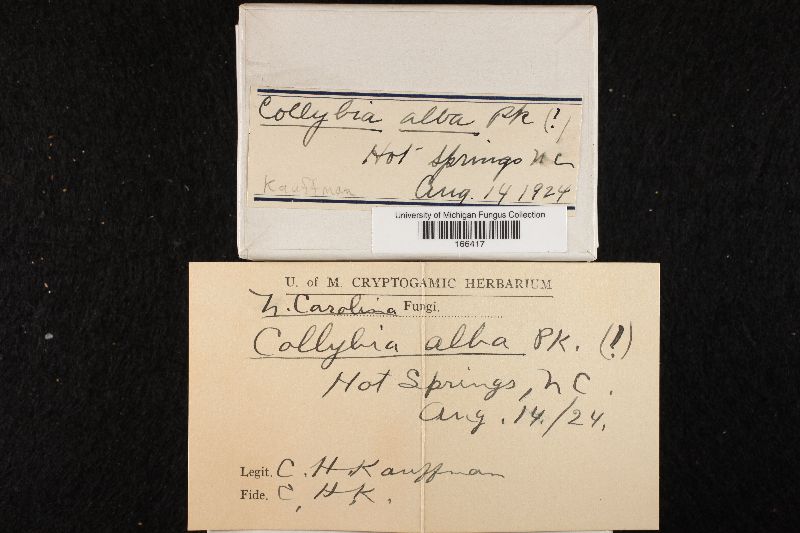 Collybia alba Pk (!)
Hot Springs N C
Kauffman Aug. 14 1924
University of Michigan Fungus Collection
166417
U. of M. CRYPTOGAMIC HERBARIUM
N. Carolina Fungi.
Collybia alba Pk. (!)
Hot Springs, N C.
Aug. 14./24.
Legit. C. H. Kauffman
Fide. C. H. K.